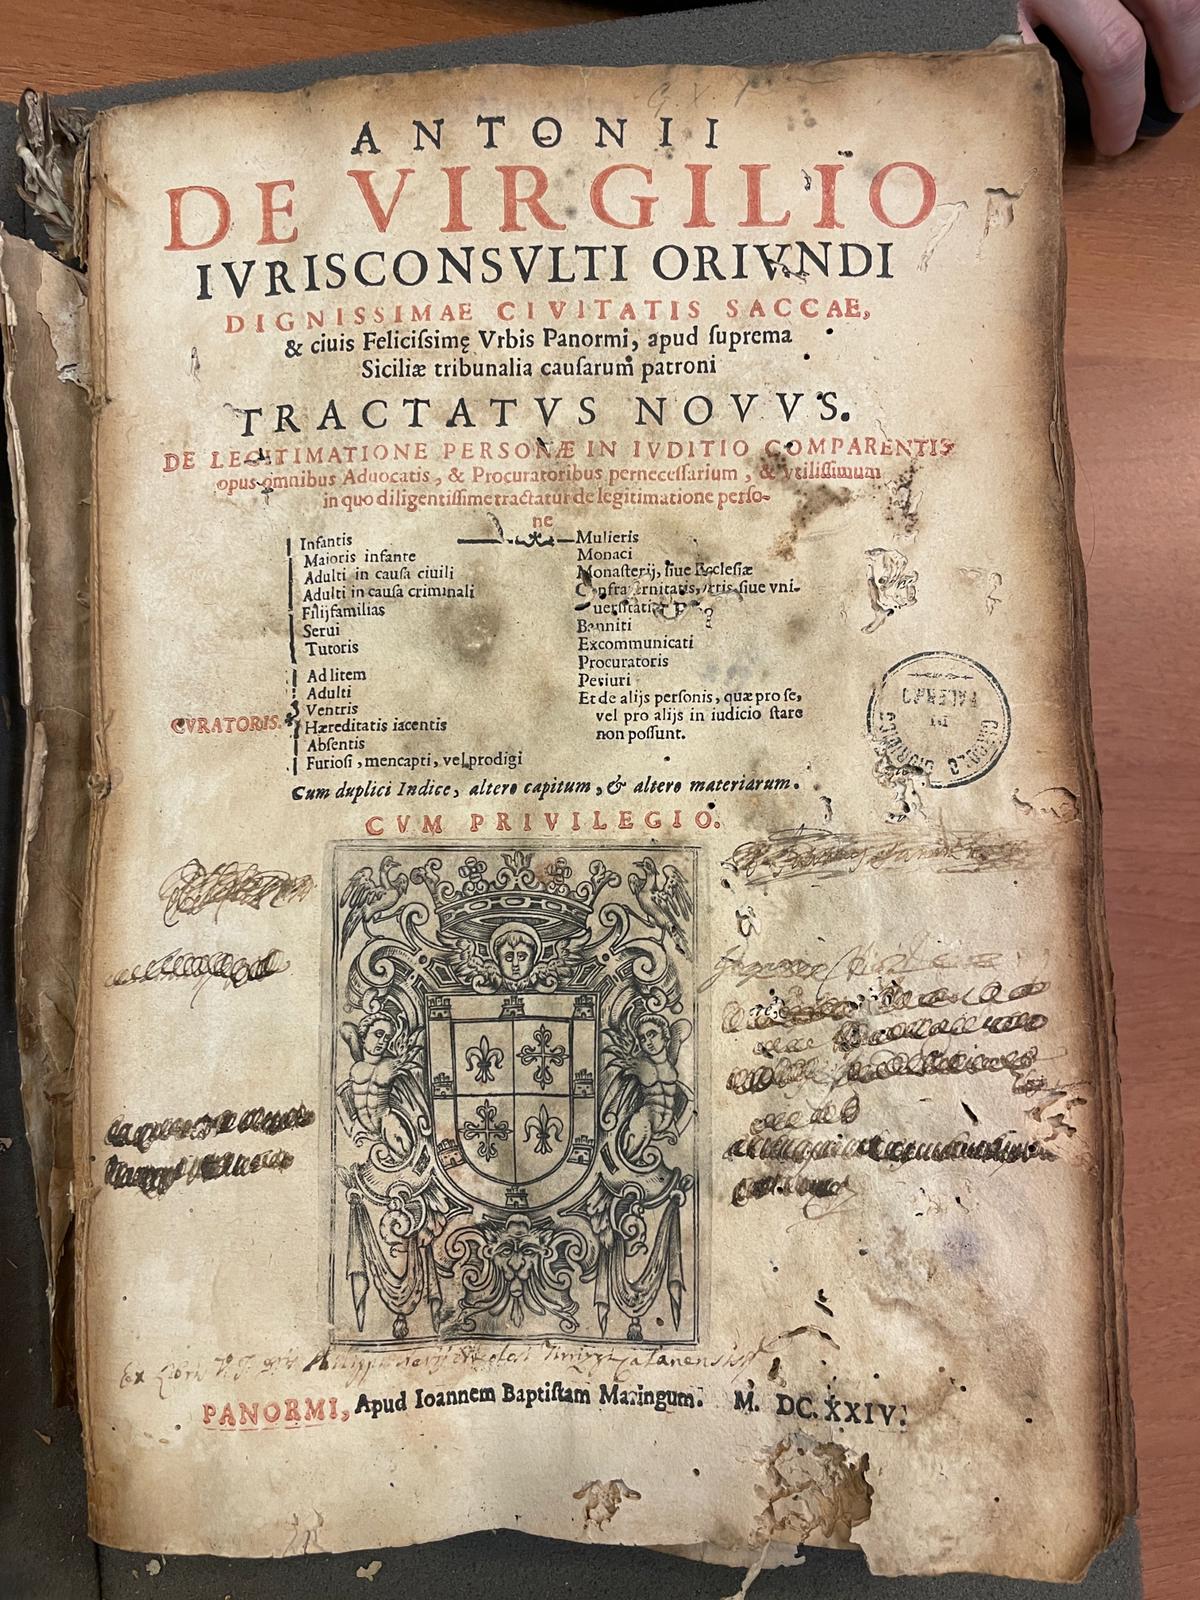 ANTONII
DE VIRGILIO
IVRISCONSVLTI ORIVNDI
DIGNISSIMAE CIVITATIS SACCAE,
& ciuis Feliciſsimę Vrbis Panormi, apud ſuprema
Siciliæ tribunalia cauſarum patroni
TRACTATVS NOVVS.
DE LEGITIMATIONE PERSONÆ IN IVDITIO COMPARENTIS
opus omnibus Aduocatis, & Procuratoribus perneceſſarium, & vtiliſſimum
in quo diligentiſſime tractatur de legitimatione perſo-
ne
Infantis
Maioris infante
Adulti in cauſa ciuili
Adulti in cauſa criminali
Filijfamilias
Serui
Tutoris
CVRATORIS.
Ad litem
Adulti
Ventris
Hæreditatis iacentis
Abſentis
Furioſi, mencapti, vel prodigi
Mulieris
Monaci
Monaſterij, ſiue Eccleſiæ
Confraternitatis, artis, ſiue vni-
uerſitatis
Banniti
Excommunicati
Procuratoris
Periuri
Et de alijs perſonis, quæ pro ſe,
vel pro alijs in iudicio ſtare
non poſſunt.
Cum duplici Indice, altero capitum, & altero materiarum.
CVM PRIVILEGIO.
CIRCOLO GIURIDICO
DI
PALERMO
Ex
PANORMI, Apud Ioannem Baptiſtam Maringum. M. DC. XXIV.